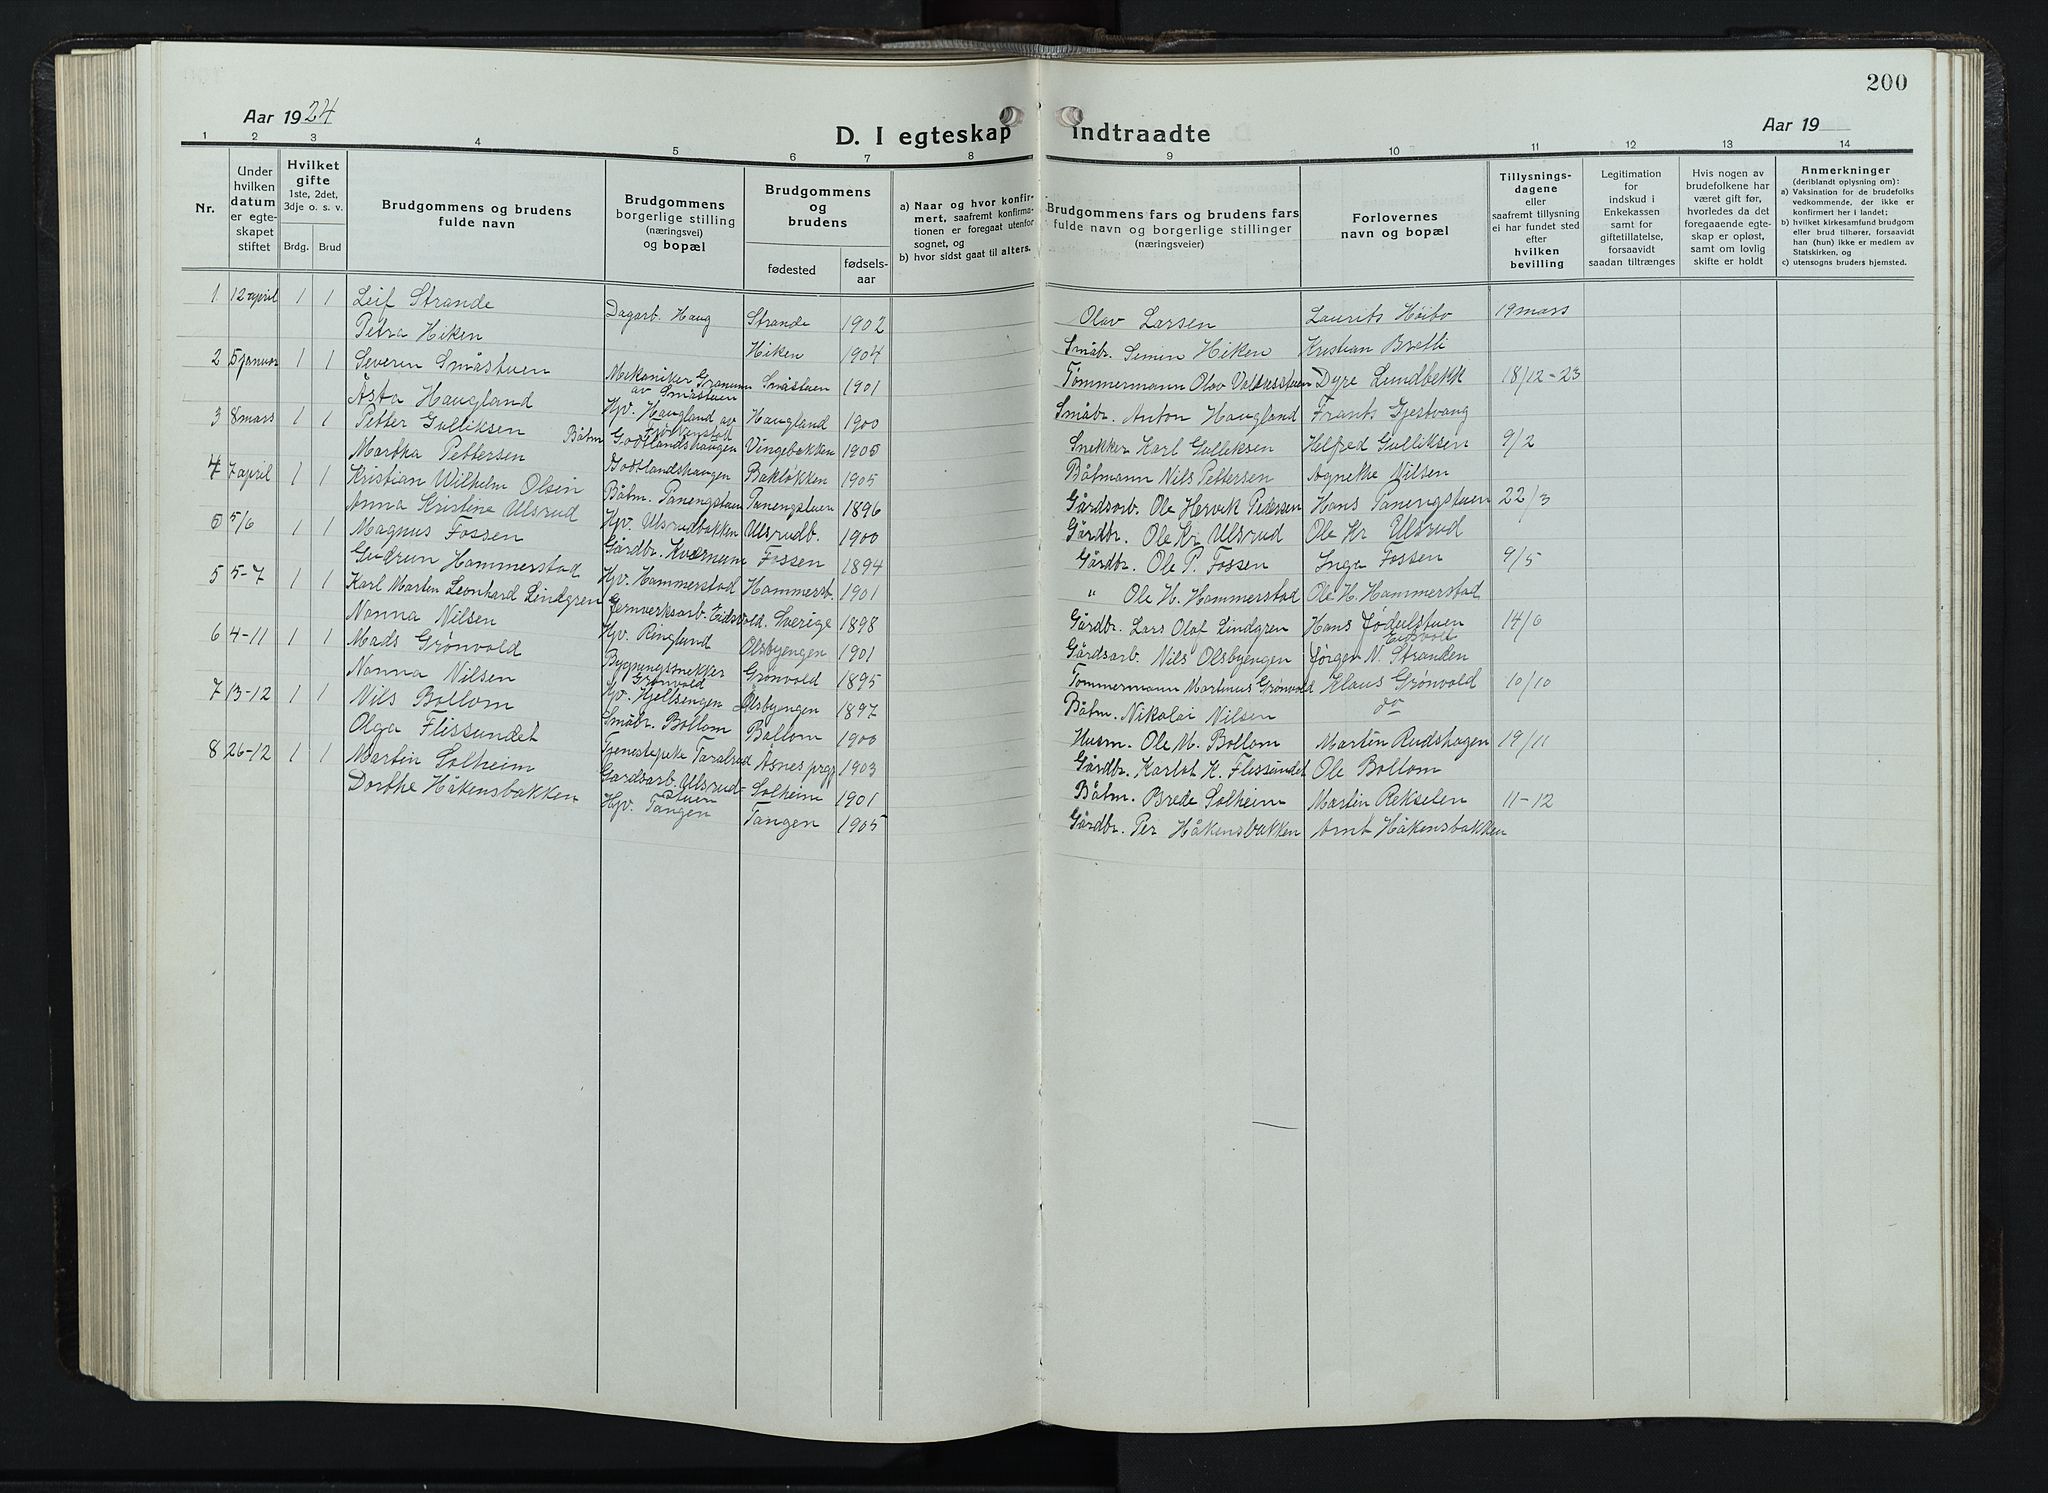 200
Aar 1924
Aar 19
D. I egteskap indtraadte
1 2 3 4 5 6 7 8 9 10 11 12 13 14
Nr.
Under hvilken datum er egteskapet stiftet
Hvilket gifte 1ste, 2det, 3dje o. s. v.
Brdg. Brud
Brudgommens og brudens fulde navn
Brudgommens borgerlige stilling (næringsvei) og bopæl
Brudgommens og brudens
fødested fødselsaar
a) Naar og hvor konfirmert, saafremt konfirmationen er foregaat utenfor sognet, og
b) hvor sidst gaat til alters.
Brudgommens fars og brudens fars fulde navn og borgerlige stillinger (næringsveier)
Forlovernes navn og bopæl
Tillysningsdagene eller saafremt tillysning ei har fundet sted efter hvilken bevilling
Legitimation for indskud i Enkekassen samt for giftetillatelse, forsaavidt saadan tiltrænges
Hvis nogen av brudefolkene har været gift før, hvorledes da det foregaaende egteskap er opløst, samt om lovlig skifte er holdt
Anmerkninger (deriblandt oplysning om):
a) Vaksination for de brudefolks vedkommende, der ikke er konfirmert her i landet;
b) hvilket kirkesamfund brudgom eller brud tilhører, forsaavidt han (hun) ikke er medlem av Statskirken, og
c) utensogns bruders hjemsted.
1 12 april 1 1 Leif Strande Dagarb. Haug Strande 1902 Olav Larsen Laurits Höibo 19 mars
Petra Hiken Hiken 1904 Småbr. Simen Hiken Kristian Bratli
2 5 januar 1 1 Severin Småstuen Mekaniker Granum av Småstuen Småstuen 1901 Tømmermann Olav Valdresstuen Dyre Lundbekk 18/12-23
Åsta Haugland Hjv. Haugland av Haugland 1900 Småbr. Anton Haugland Frants Gjestvang
3 8 mars 1 1 Petter Gulliksen Båtm Godtlandshaugen Vingebakken 1905 Snekker Karl Gulliksen Helfred Gulliksen 9/2
Martha Pettersen Godtlandshaugen Bakløkken 1905 Båtmann Nils Pettersen Agnethe Nilsen
4 7 april 1 1 Kristian Wilhelm Olsen Båtm. Panengstuen Panengstuen 1896 Gårdsarb. Ole Hervik Pedersen Hans Panengstuen 22/3
Anna Kristine Ulsrud Hjv. Ulsrudbakken Ulsrudb. 1900 Gårdbr. Ole Kr Ulsrud Ole Kr Ulsrud
5 5/6 1 1 Magnus Fossen Gårdbr. Kværnum Fossen 1894 Gårdbr. Ole P. Fossen Inga Fossen 9/5
Gudrun Hammerstad Hjv. Hammerstad Hammerst. 1901 " Ole H. Hammerstad Ole H. Hammerstad
5 5-7 1 1 Karl Marten Leonhard Lindgren Jernverksarb. Eidsvold. Sverige 1898 Gårdbr. Lars Olaf Lindgren Hans Jødulstuen Eidsvold 14/6
Nanna Nilsen Hjv. Ringlund Olsbyengen 1901 Gårdsarb. Nils Olsbyengen Jørgen N. Stranden
6 4-11 1 1 Mads Grønvold Bygningssnekker Grønvold Grønvold 1895 Tømmermann Martinus Grønvold Klaus Grønvold 10/10
Nanna Nilsen Hjv. Hjellsengen Olsbyengen 1897 Båtm. Nikolai Nilsen do
7 13-12 1 1 Nils Bollom Småbr. Bollom Bollom 1900 Husm. Ole M. Bollom Martin Rudshagen 19/11
Olga Flissundet Tjenestepike Taralrud Åsnes prgj 1903 Gårdbr. Karlot K. Flissundet Ole Bollom
8 26-12 1 1 Martin Solheim Gardsarb. Ulsrudstuen Solheim 1901 Båtm. Brede Solheim Martin Rekstelen 11-12
Dorthe Håkensbakken Hjv. Tangen Tangen 1905 Gårdbr. Per Håkensbakken Arnt Håkensbakken